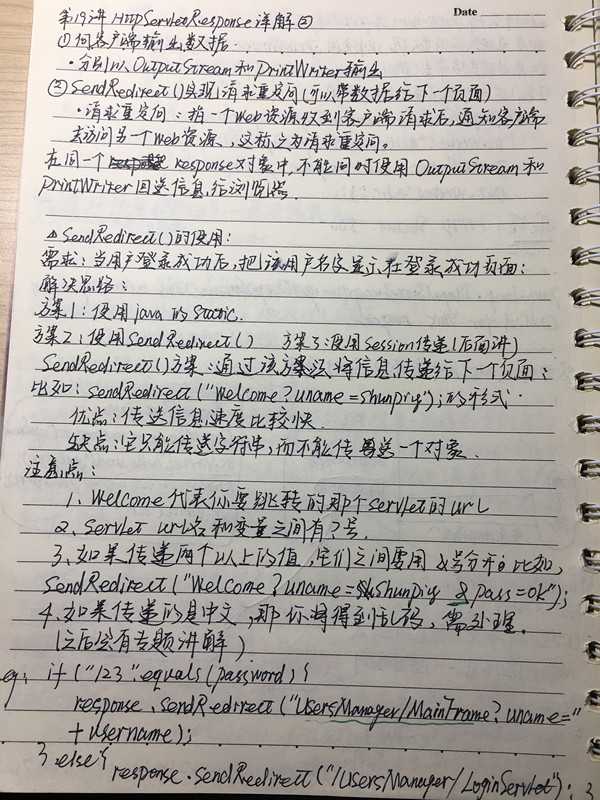 Date
第19讲 HttpServletResponse详解②
① 向客户端输出数据.
· 分别以OutputStream和PrintWriter输出
② SendRedirect()实现请求重定向(可以带数据给下一个页面)
· 请求重定向: 指一个Web资源收到客户端请求后, 通知客户端
去访问另一个Web资源, 这称之为请求重定向。
在同一个 response对象中, 不能同时使用OutputStream和
PrintWriter回送信息给浏览器.
△ SendRedirect()的使用:
需求: 当用户登录成功后, 把该用户名字显示在登录成功页面:
解决思路:
方案1: 使用java的Static.
方案2: 使用SendRedirect() 方案3: 使用Session传递(后面讲)
SendRedirect()方案: 通过该方案 将信息传递给下一个页面:
比如: sendRedirect("Welcome?uname=Shunpiy"); 的形式.
优点: 传送信息速度比较快.
缺点: 它只能传送字符串, 而不能传送一个对象.
注意点:
1、Welcome代表你要跳转的那个servlet的url
2、Servlet url名和变量之间有?号.
3、如果传递两个以上的值, 它们之间需用&号分开. 比如,
SendRedirect("Welcome?uname=Shunpiy &pass=ok");
4、如果传递的是中文, 那你将得到乱码, 需处理.
(之后会有专题讲解)
eg: if("123".equals(password){
response.sendRedirect("UsersManager/MainFrame?uname="
+username);
}else{
response.sendRedirect("/UsersManager/LoginServlet"); }